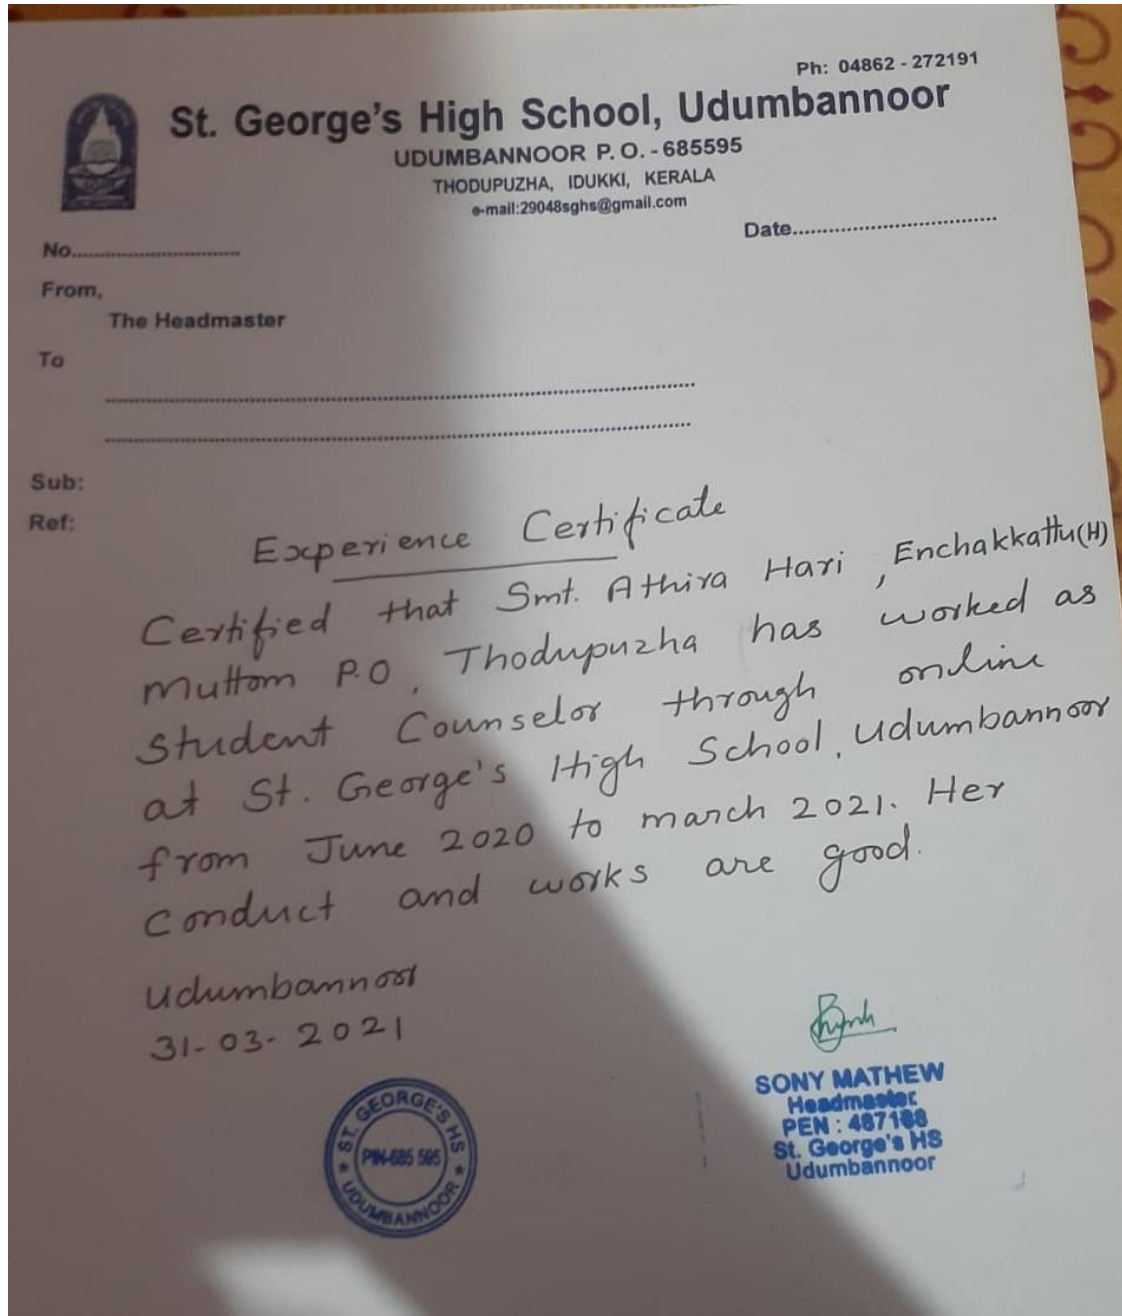 Ph: 04862 - 272191
St. George's High School, Udumbannoor
UDUMBANNOOR P. O. - 685595
THODUPUZHA, IDUKKI, KERALA
e-mail:29048sghs@gmail.com
No..............................
Date..................................
From,
The Headmaster
To
Sub:
Ref:
Experience Certificate
Certified that Smt. Athira Hari, Enchakkattu(H)
Muttom P.O, Thodupuzha has worked as
Student Counselor through online
at St. George's High School, Udumbannoor
from June 2020 to march 2021. Her
conduct and works are good.
Udumbannoor
31-03-2021
ST. GEORGE'S HS
PIN-685 595
UDUMBANNOOR
SONY MATHEW
Headmaster
PEN : 487188
St. George's HS
Udumbannoor